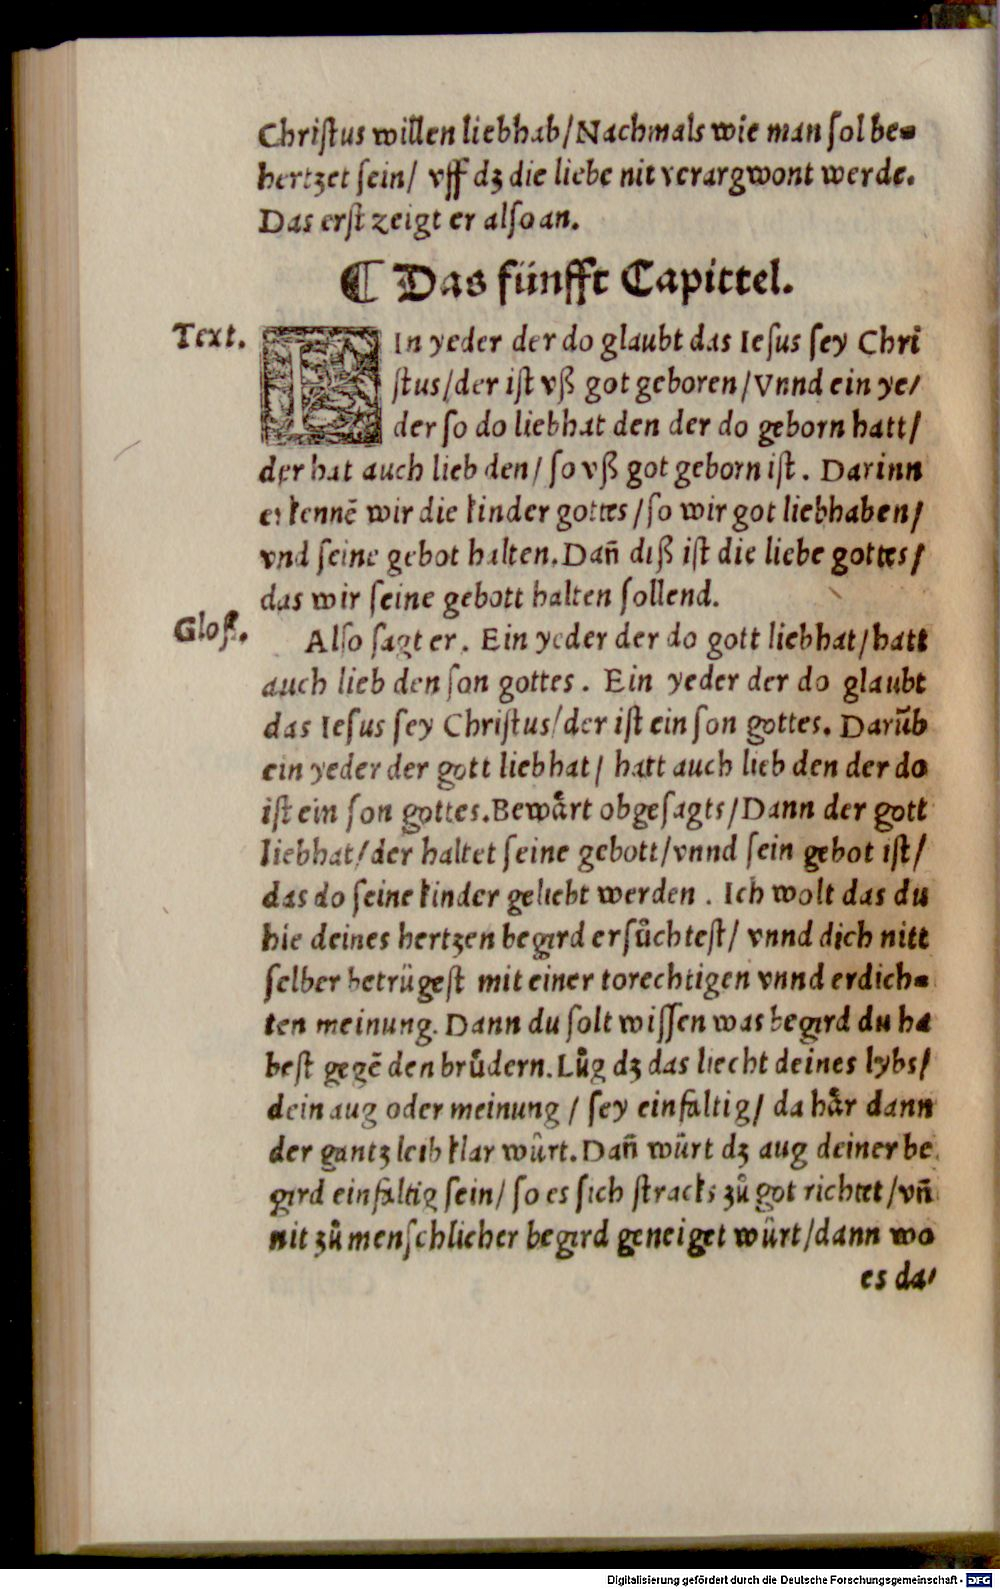 Chriſtus willen liebhab/Nachmals wie man ſol be⸗
hertzet ſein/ vff dꝫ die liebe nit verargwont werde.
Das erſt zeigt er alſo an.
¶ Das fünfft Capittel.
Text.
EIn yeder der do glaubt das Ieſus ſey Chri
ſtus/der iſt vß got geboren/Vnnd ein ye/
der ſo do liebhat den der do geborn hatt/
der hat auch lieb den/ ſo vß got geborn iſt. Darinn
erkennē wir die kinder gottes/ſo wir got liebhaben/
vnd ſeine gebot halten.Dañ diß iſt die liebe gottes/
das wir ſeine gebott halten ſollend.
Gloß.
Alſo ſagt er. Ein yeder der do gott liebhat/hatt
auch lieb den ſon gottes. Ein yeder der do glaubt
das Ieſus ſey Chriſtus/der iſt ein ſon gottes. Darūb
ein yeder der gott liebhat/ hatt auch lieb den der do
iſt ein ſon gottes.Bewaͤrt obgeſagts/Dann der gott
liebhat/der haltet ſeine gebott/vnnd ſein gebot iſt/
das do ſeine kinder geliebt werden. Ich wolt das du
hie deines hertzen begird erſuͦchteſt/ vnnd dich nitt
ſelber betrügeſt mit einer torechtigen vnnd erdich⸗
ten meinung. Dann du ſolt wiſſen was begird du ha
beſt gegē den bruͤdern.Luͦg dꝫ das liecht deines lybs/
dein aug oder meinung/ ſey einfaltig/ da haͤr dann
der gantz leib klar wuͤrt.Dañ wuͤrt dꝫ aug deiner be
gird einfaltig ſein/ ſo es ſich ſtracks zuͦ got richtet/vñ
nit zuͦ menſchlicher begird geneiget wuͤrt/dann wo
es da/
Digitalisierung gefördert durch die Deutsche Forschungsgemeinschaft - DFG